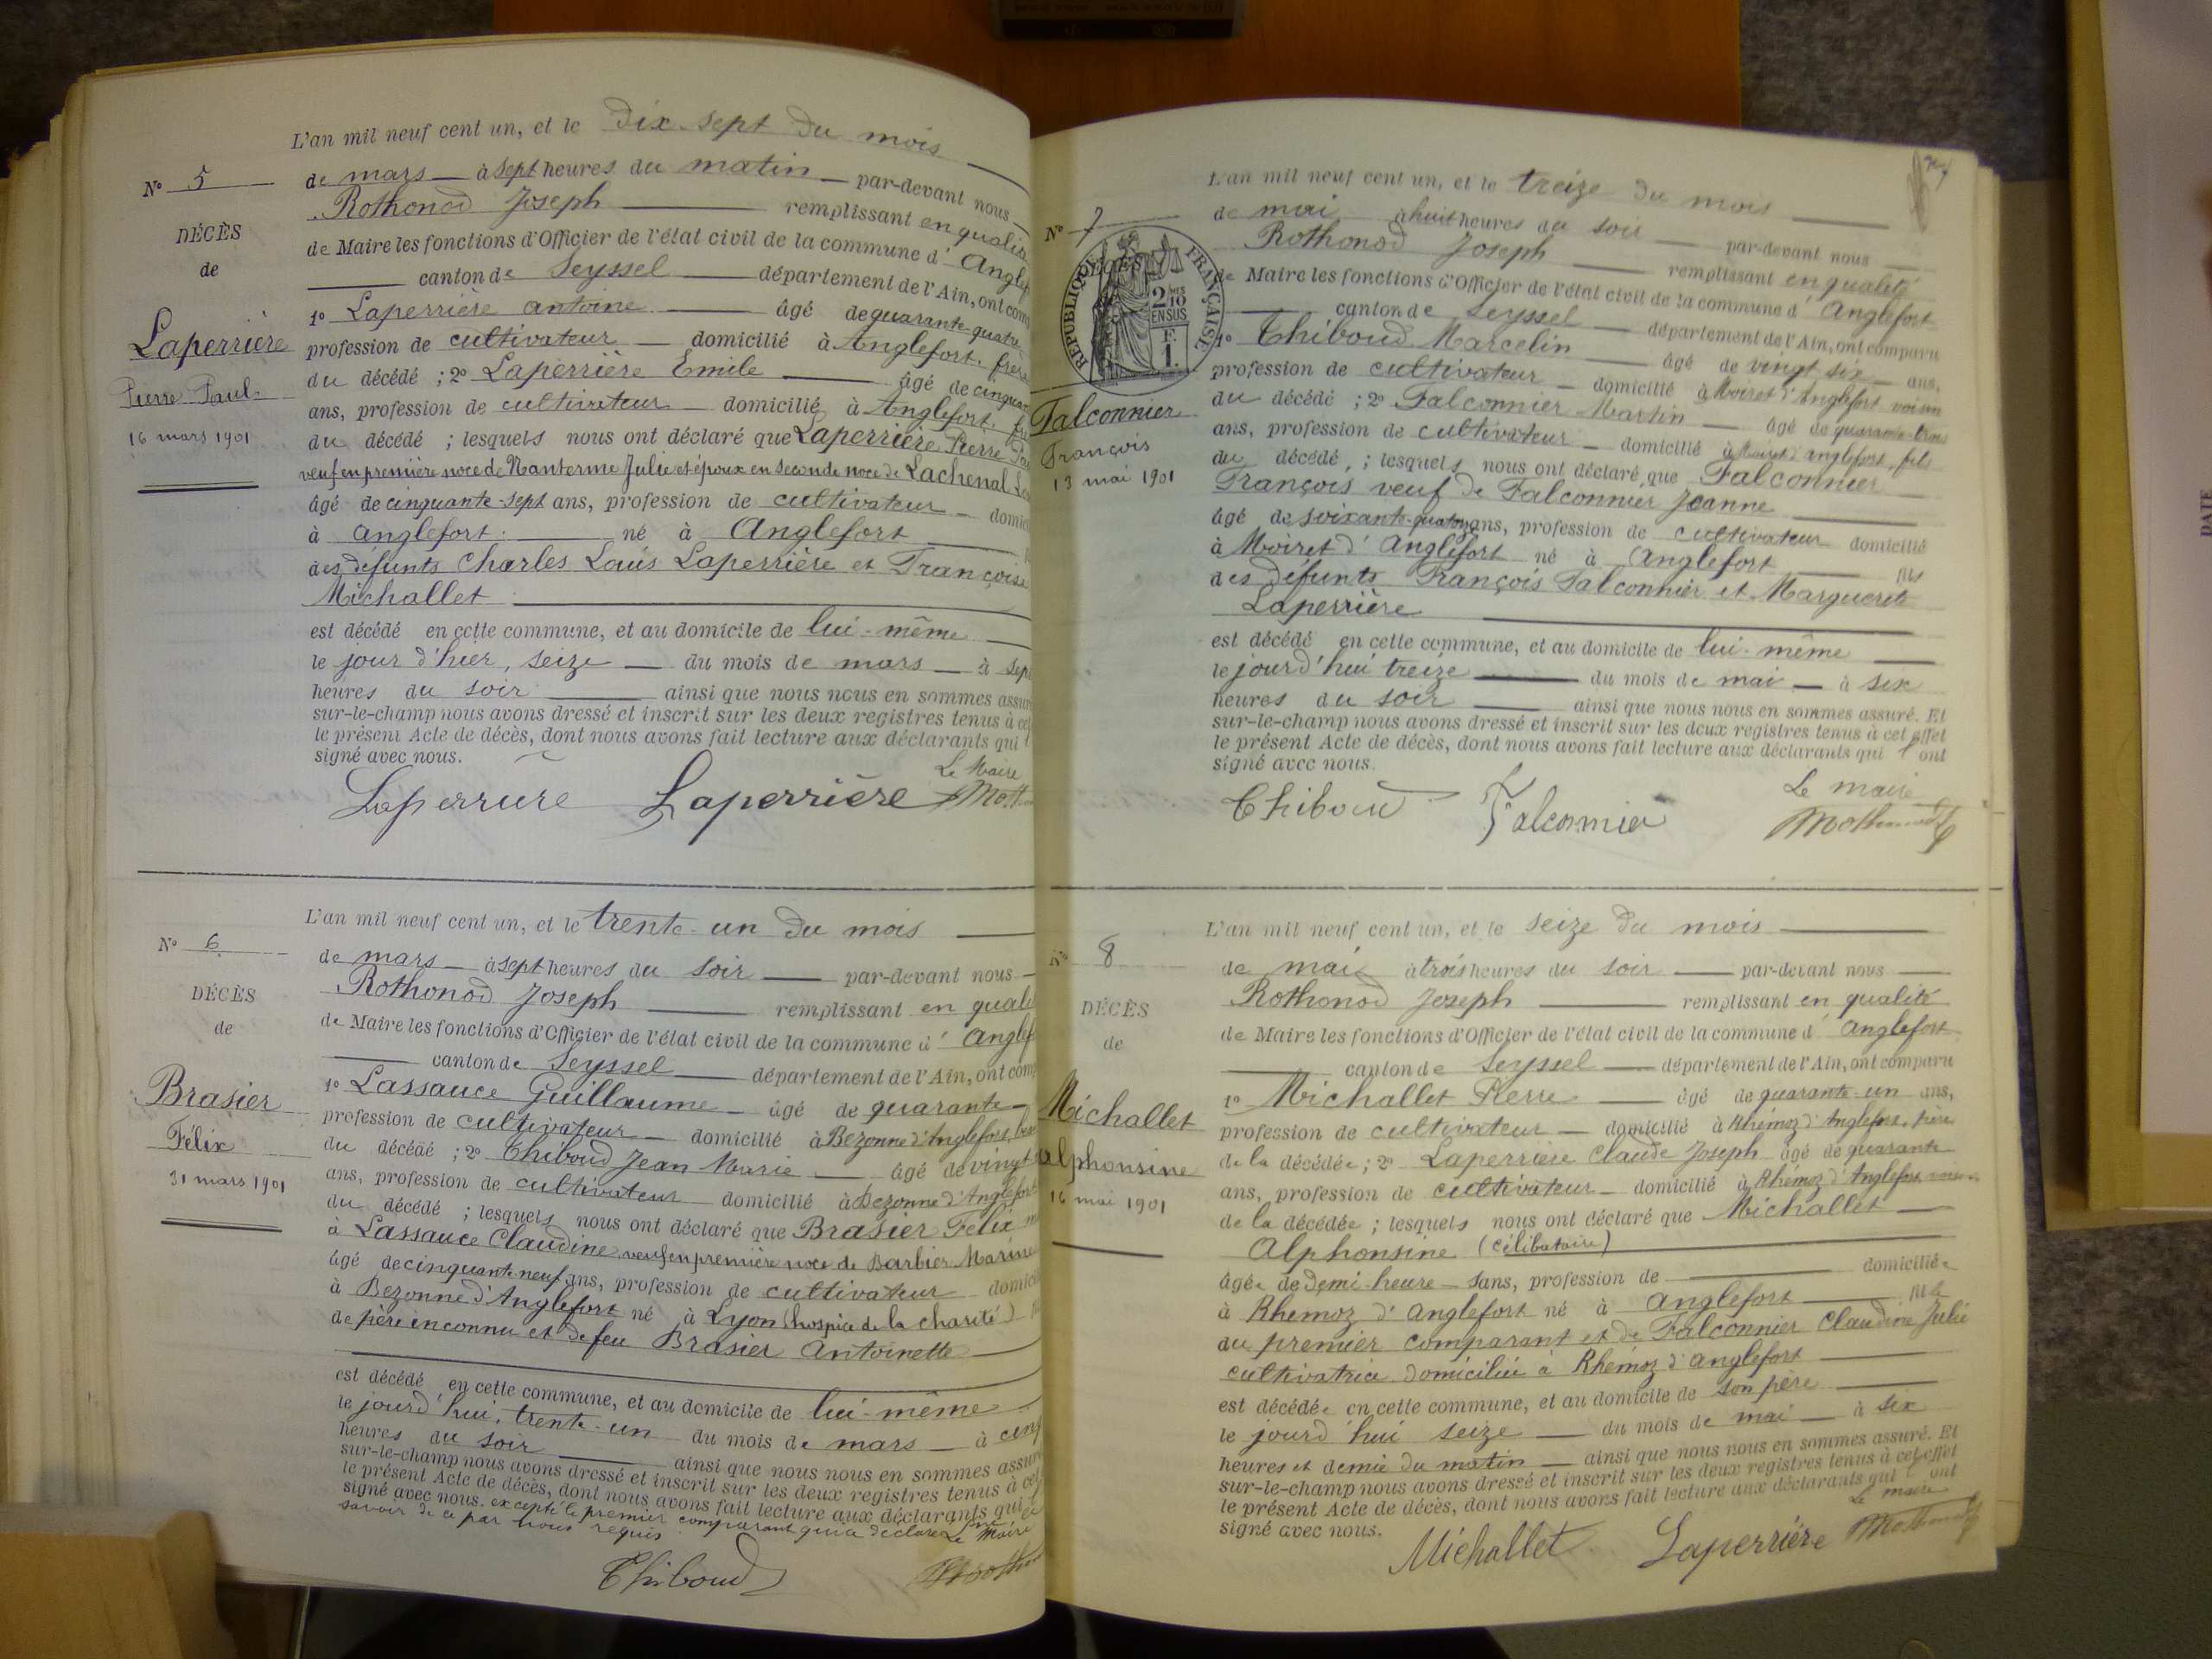 L'an mil neuf cent un, et le dix-sept du mois
N° 5
de mars à sept heures du matin par-devant nous
Rothonod Joseph remplissant en qualité
DÉCÈS
de
de Maire les fonctions d'Officier de l'état civil de la commune d' Anglef
canton de Seyssel département de l'Ain, ont com
1° Laperrière antoine âgé de quarante-quatre
Laperrière
profession de cultivateur domicilié à Anglefort. frère
du décédé ; 2° Laperrière Emile âgé de cinquan
Pierre Paul
ans, profession de cultivateur domicilié à Anglefort.
16 mars 1901
du décédé ; lesquels nous ont déclaré que Laperrière Pierre
veuf en première noce de Nanterme Julie et époux en seconde noce de Lachenal
âgé de cinquante-sept ans, profession de cultivateur domici
à anglefort né à Anglefort
des défunts Charles Louis Laperrière et Françoise
Michallet
est décédé en cette commune, et au domicile de lui-même
le jour d'hier, seize du mois de mars à sept
heures du soir ainsi que nous nous en sommes assuré
sur-le-champ nous avons dressé et inscrit sur les deux registres tenus à cet
le présent Acte de décès, dont nous avons fait lecture aux déclarants qui
signé avec nous.
Le Maire
Laperrière Laperrière
L'an mil neuf cent un, et le trente-un du mois
N° 6
de mars à sept heures du soir par-devant nous
Rothonod Joseph remplissant en quali
DÉCÈS
de
de Maire les fonctions d'Officier de l'état civil de la commune d' Anglef
canton de Seyssel département de l'Ain, ont comp
Brasier
1° Lassauce Guillaume âgé de quarante
profession de cultivateur domicilié à Bezonne d'Anglefort
Félix
du décédé ; 2° Thiboud Jean Marie âgé de vingt
31 mars 1901
ans, profession de cultivateur domicilié à Bezonne d'Anglefort
du décédé ; lesquels nous ont déclaré que Brasier Félix
à Lassauce Claudine veuf en première noce de Barbier Marine
âgé de cinquante-neuf ans, profession de cultivateur domicil
à Bezonne d'Anglefort né à Lyon (hospice de la charité)
de père inconnu et de feu Brasier Antoinette
est décédé en cette commune, et au domicile de lui-même
le jourd'hui, trente-un du mois de mars à cinq
heures du soir ainsi que nous nous en sommes assuré
sur-le-champ nous avons dressé et inscrit sur les deux registres tenus à cet
le présent Acte de décès, dont nous avons fait lecture aux déclarants qui
signé avec nous. excepté le premier comparant qui a déclaré ne
savoir de ce par nous requis. Le Maire
Thiboud
L'an mil neuf cent un, et le treize du mois
N° 7
de mai à huit heures du soir par-devant nous
Rothonod Joseph remplissant en qualité
RÉPUBLIQUE FRANÇAISE
2/10 EN SUS
F. 1.
de Maire les fonctions d'Officier de l'état civil de la commune d' Anglefort
canton de Seyssel département de l'Ain, ont comparu
1° Thiboud Marcelin âgé de vingt six ans,
profession de cultivateur domicilié à Moiret d'Anglefort voisin
Falconnier
du décédé ; 2° Falconnier Martin âgé de quarante-trois
François
ans, profession de cultivateur domicilié à Moiret d'anglefort, fils
13 mai 1901
du décédé, ; lesquels nous ont déclaré que Falconnier
François veuf de Falconnier Jeanne
âgé de soixante-quatorze ans, profession de cultivateur domicilié
à Moiret d'Anglefort né à Anglefort fils
des défunts François Falconnier et Marguerite
Laperrière
est décédé en cette commune, et au domicile de lui-même
le jourd'hui treize du mois de mai à six
heures du soir ainsi que nous nous en sommes assuré. Et
sur-le-champ nous avons dressé et inscrit sur les deux registres tenus à cet effet
le présent Acte de décès, dont nous avons fait lecture aux déclarants qui l'ont
signé avec nous.
Le maire
Thiboud Falconnier
L'an mil neuf cent un, et le seize du mois
N° 8
de mai à trois heures du soir par-devant nous
Rothonod Joseph remplissant en qualité
DÉCÈS
de
de Maire les fonctions d'Officier de l'état civil de la commune d' anglefort
canton de Seyssel département de l'Ain, ont comparu
Michallet
1° Michallet Pierre âgé de quarante-un ans,
profession de cultivateur domicilié à Rhémoz d'Anglefort, père
alphonsine
de la décédée ; 2° Laperrière Claude Joseph âgé de quarante
16 mai 1901
ans, profession de cultivateur domicilié à Rhémoz d'Anglefort
de la décédée ; lesquels nous ont déclaré que Michallet
Alphonsine (célibataire)
âgée de demi-heure sans, profession de domiciliée
à Rhemoz d'anglefort né à anglefort fille
du premier comparant et de Falconnier Claudine Julie
cultivatrice domiciliée à Rhémoz d'anglefort
est décédée en cette commune, et au domicile de son père
le jourd'hui seize du mois de mai à six
heures et demie du matin ainsi que nous nous en sommes assuré. Et
sur-le-champ nous avons dressé et inscrit sur les deux registres tenus à cet effet
le présent Acte de décès, dont nous avons fait lecture aux déclarants qui l'ont
signé avec nous.
Le maire
Michallet Laperrière
DATE